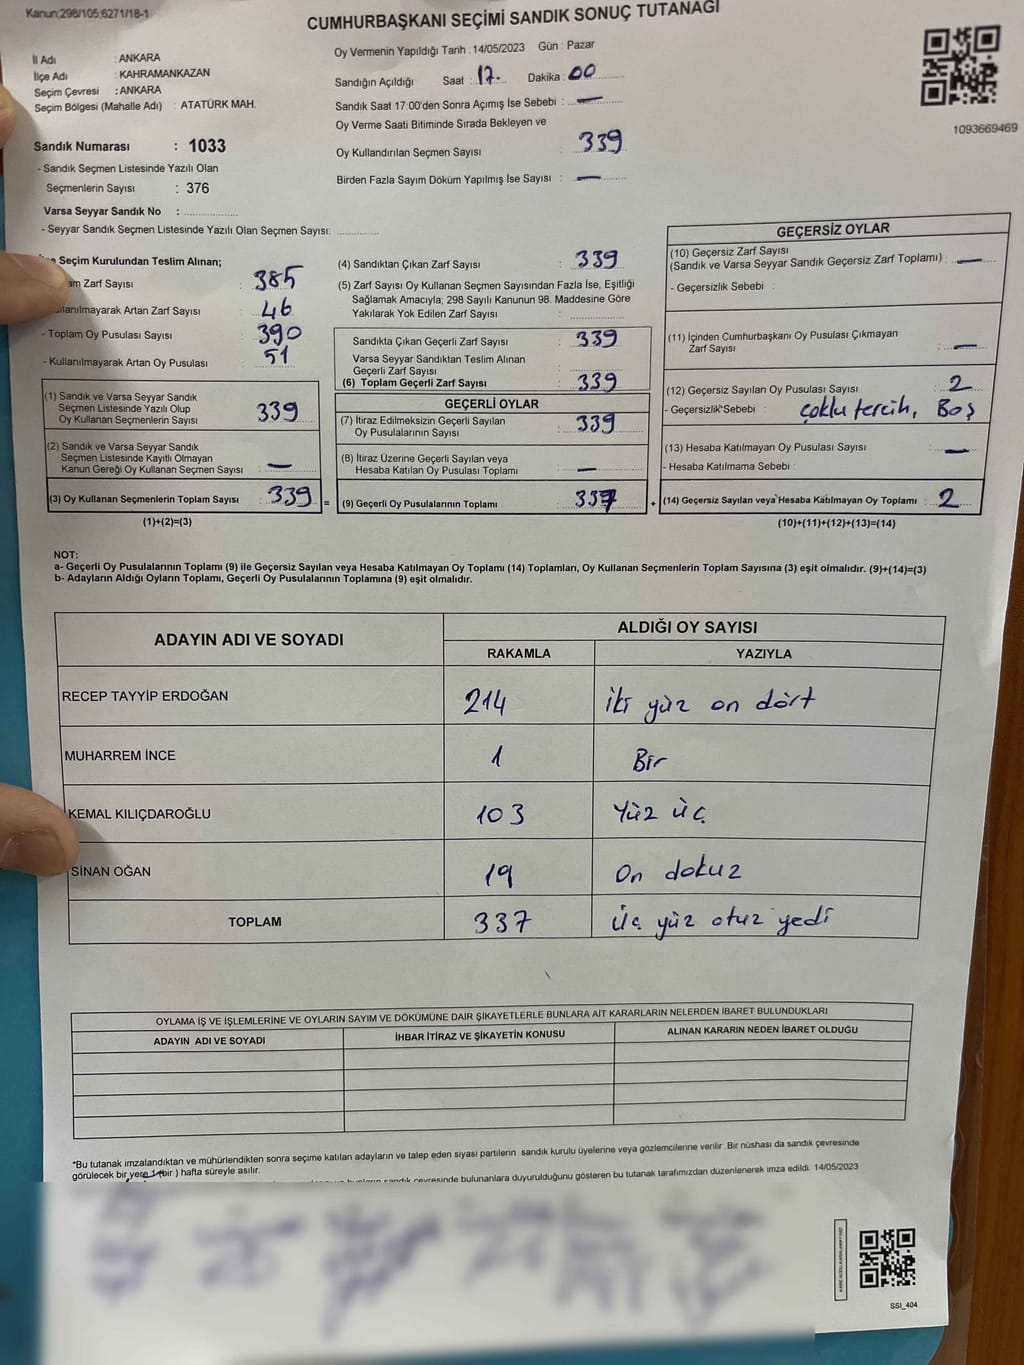 Kanun;298/105;6271/18-1
CUMHURBAŞKANI SEÇİMİ SANDIK SONUÇ TUTANAĞI
İl Adı : ANKARA
İlçe Adı : KAHRAMANKAZAN
Seçim Çevresi : ANKARA
Seçim Bölgesi (Mahalle Adı) : ATATÜRK MAH.
Sandık Numarası : 1033
- Sandık Seçmen Listesinde Yazılı Olan
Seçmenlerin Sayısı : 376
Varsa Seyyar Sandık No : ..................
- Seyyar Sandık Seçmen Listesinde Yazılı Olan Seçmen Sayısı: ..............
Oy Vermenin Yapıldığı Tarih : 14/05/2023 Gün : Pazar
Sandığın Açıldığı Saat : 17. Dakika : 00
Sandık Saat 17:00'den Sonra Açımış İse Sebebi : —
Oy Verme Saati Bitiminde Sırada Bekleyen ve
Oy Kullandırılan Seçmen Sayısı 339
Birden Fazla Sayım Döküm Yapılmış İse Sayısı : —
1093669469
Seçim Kurulundan Teslim Alınan;
Zarf Sayısı : 385
Artan Zarf Sayısı : 46
- Toplam Oy Pusulası Sayısı : 390
- Kullanılmayarak Artan Oy Pusulası : 51
(1) Sandık ve Varsa Seyyar Sandık
Seçmen Listesinde Yazılı Olup
Oy Kullanan Seçmenlerin Sayısı : 339
(2) Sandık ve Varsa Seyyar Sandık
Seçmen Listesinde Kayıtlı Olmayan
Kanun Gereği Oy Kullanan Seçmen Sayısı : —
(3) Oy Kullanan Seçmenlerin Toplam Sayısı : 339 =
(1)+(2)=(3)
(4) Sandıktan Çıkan Zarf Sayısı : 339
(5) Zarf Sayısı Oy Kullanan Seçmen Sayısından Fazla İse, Eşitliği
Sağlamak Amacıyla; 298 Sayılı Kanunun 98. Maddesine Göre
Yakılarak Yok Edilen Zarf Sayısı :
Sandıkta Çıkan Geçerli Zarf Sayısı : 339
Varsa Seyyar Sandıktan Teslim Alınan
Geçerli Zarf Sayısı :
(6) Toplam Geçerli Zarf Sayısı : 339
GEÇERLİ OYLAR
(7) İtiraz Edilmeksizin Geçerli Sayılan
Oy Pusulalarının Sayısı : 339
(8) İtiraz Üzerine Geçerli Sayılan veya
Hesaba Katılan Oy Pusulası Toplamı : —
(9) Geçerli Oy Pusulalarının Toplamı : 337 +
GEÇERSİZ OYLAR
(10) Geçersiz Zarf Sayısı
(Sandık ve Varsa Seyyar Sandık Geçersiz Zarf Toplamı) : —
- Geçersizlik Sebebi :
(11) İçinden Cumhurbaşkanı Oy Pusulası Çıkmayan
Zarf Sayısı : —
(12) Geçersiz Sayılan Oy Pusulası Sayısı : 2
- Geçersizlik Sebebi : çoklu tercih, Boş
(13) Hesaba Katılmayan Oy Pusulası Sayısı : —
- Hesaba Katılmama Sebebi :
(14) Geçersiz Sayılan veya Hesaba Katılmayan Oy Toplamı : 2
(10)+(11)+(12)+(13)=(14)
NOT:
a- Geçerli Oy Pusulalarının Toplamı (9) ile Geçersiz Sayılan veya Hesaba Katılmayan Oy Toplamı (14) Toplamları, Oy Kullanan Seçmenlerin Toplam Sayısına (3) eşit olmalıdır. (9)+(14)=(3)
b- Adayların Aldığı Oyların Toplamı, Geçerli Oy Pusulalarının Toplamına (9) eşit olmalıdır.
ADAYIN ADI VE SOYADI ALDIĞI OY SAYISI
RAKAMLA YAZIYLA
RECEP TAYYİP ERDOĞAN 214 iki yüz on dört
MUHARREM İNCE 1 Bir
KEMAL KILIÇDAROĞLU 103 Yüz üç
SİNAN OĞAN 19 On dokuz
TOPLAM 337 Üç yüz otuz yedi
OYLAMA İŞ VE İŞLEMLERİNE VE OYLARIN SAYIM VE DÖKÜMÜNE DAİR ŞİKAYETLERLE BUNLARA AİT KARARLARIN NELERDEN İBARET BULUNDUKLARI
ADAYIN ADI VE SOYADI İHBAR İTİRAZ VE ŞİKAYETİN KONUSU ALINAN KARARIN NEDEN İBARET OLDUĞU
*Bu tutanak imzalandıktan ve mühürlendikten sonra seçime katılan adayların ve talep eden siyasi partilerin sandık kurulu üyelerine veya gözlemcilerine verilir. Bir nüshası da sandık çevresinde
görülecek bir yere 1 (bir) hafta süreyle asılır.
sandık çevresinde bulunanlara duyurulduğunu gösteren bu tutanak tarafımızdan düzenlenerek imza edildi. 14/05/2023
SSI_404